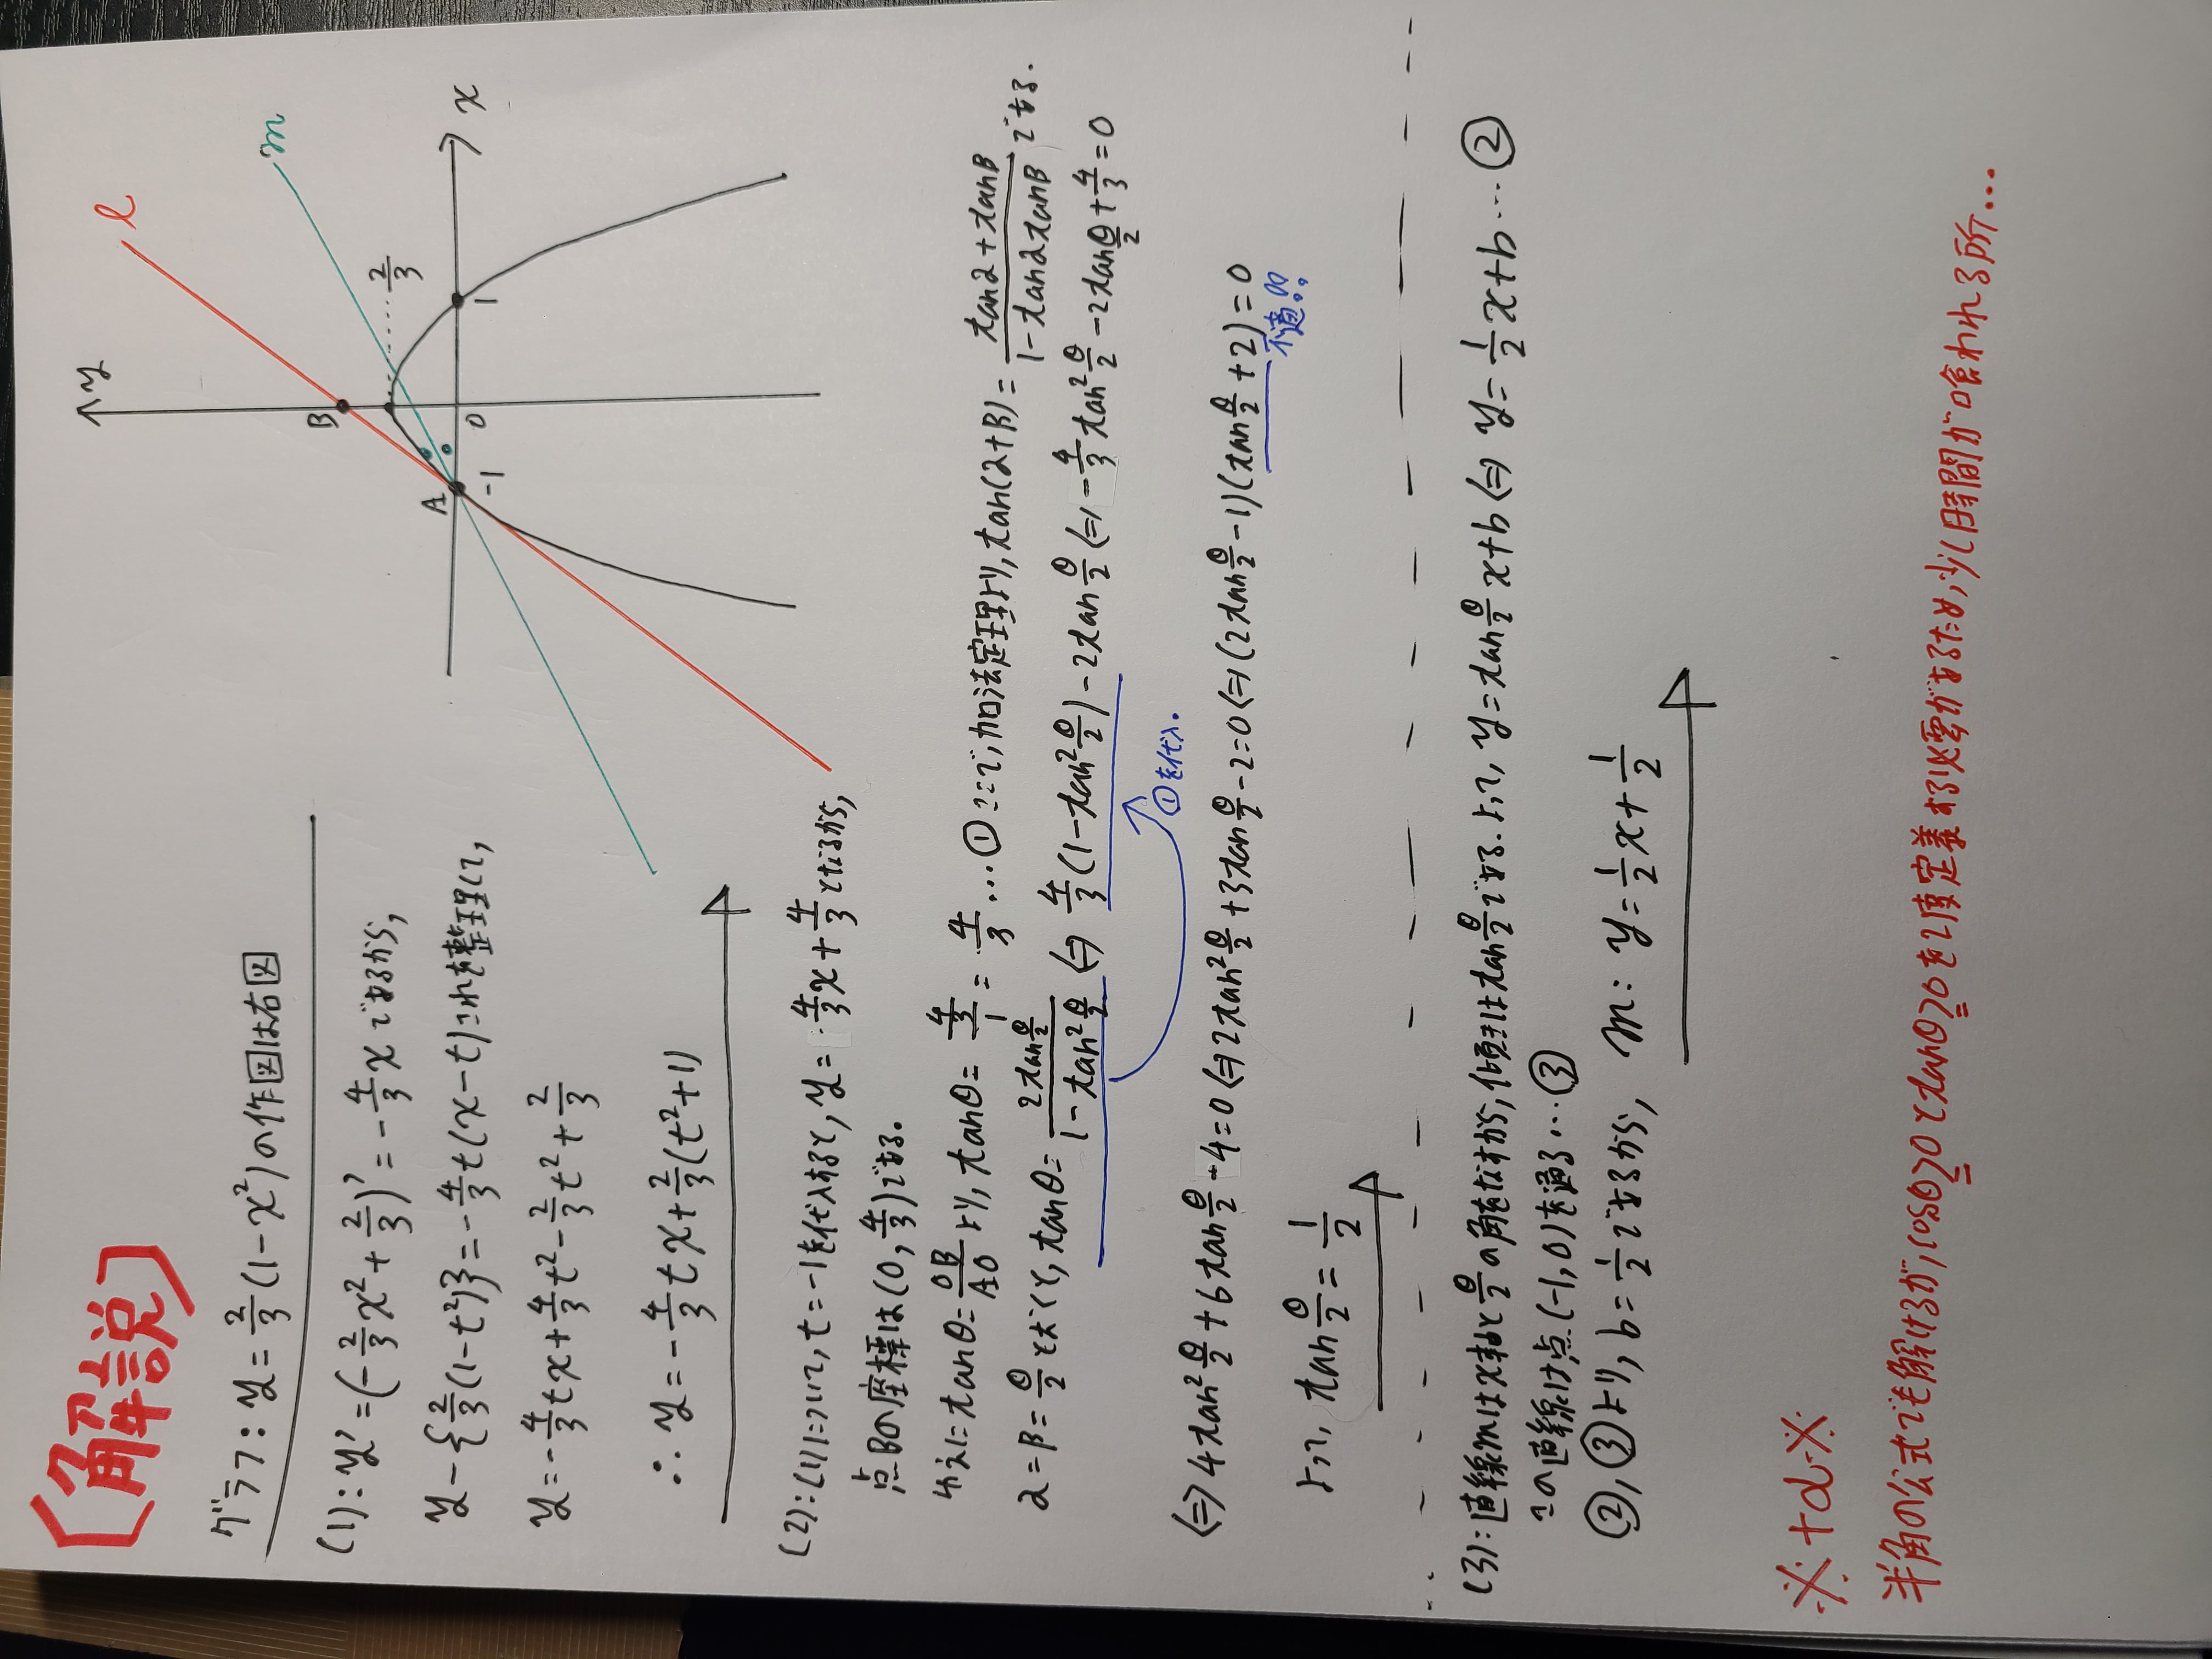 (解説)
グラフ: y=2/3(1-x²)の作図は右図
(1): y'=(-2/3x²+2/3)'=-4/3xであるから,
y-{2/3(1-t²)}=-4/3t(x-t)これを整理して,
y=-4/3tx+4/3t²-2/3t²+2/3
∴y=-4/3tx+2/3(t²+1)
y
x
l
m
B
A
-1
0
1
2/3
(2): (1)について, t=-1を代入すると, y=4/3x+4/3となるから,
点Bの座標は(0, 4/3)である。
ゆえにtanθ=OB/AOより, tanθ=4/3/1=4/3…①ここで, 加法定理より, tan(α+β)=tanα+tanβ/1-tanαtanβである.
α=β=θ/2とおくと, tanθ=2tanθ/2/1-tan²θ/2⇔4/3(1-tan²θ/2)-2tanθ/2⇔-4/3tan²θ/2-2tanθ/2+4/3=0
①を代入.
⇔4tan²θ/2+6tanθ/2-4=0⇔2tan²θ/2+3tanθ/2-2=0⇔(2tanθ/2-1)(tanθ/2+2)=0
不適!!
よって, tanθ/2=1/2
(3): 直線mはx軸とθ/2の角をなすから, 傾きはtanθ/2である. よって, y=tanθ/2x+b⇔y=1/2x+b…②
この直線は点(-1,0)を通る…③
②,③より, b=1/2であるから, m: y=1/2x+1/2
※+α※
半角の公式でも解けるが, cosθ>0とtanθ>0を2度定義する必要があるため, 少し時間が喰われる所…